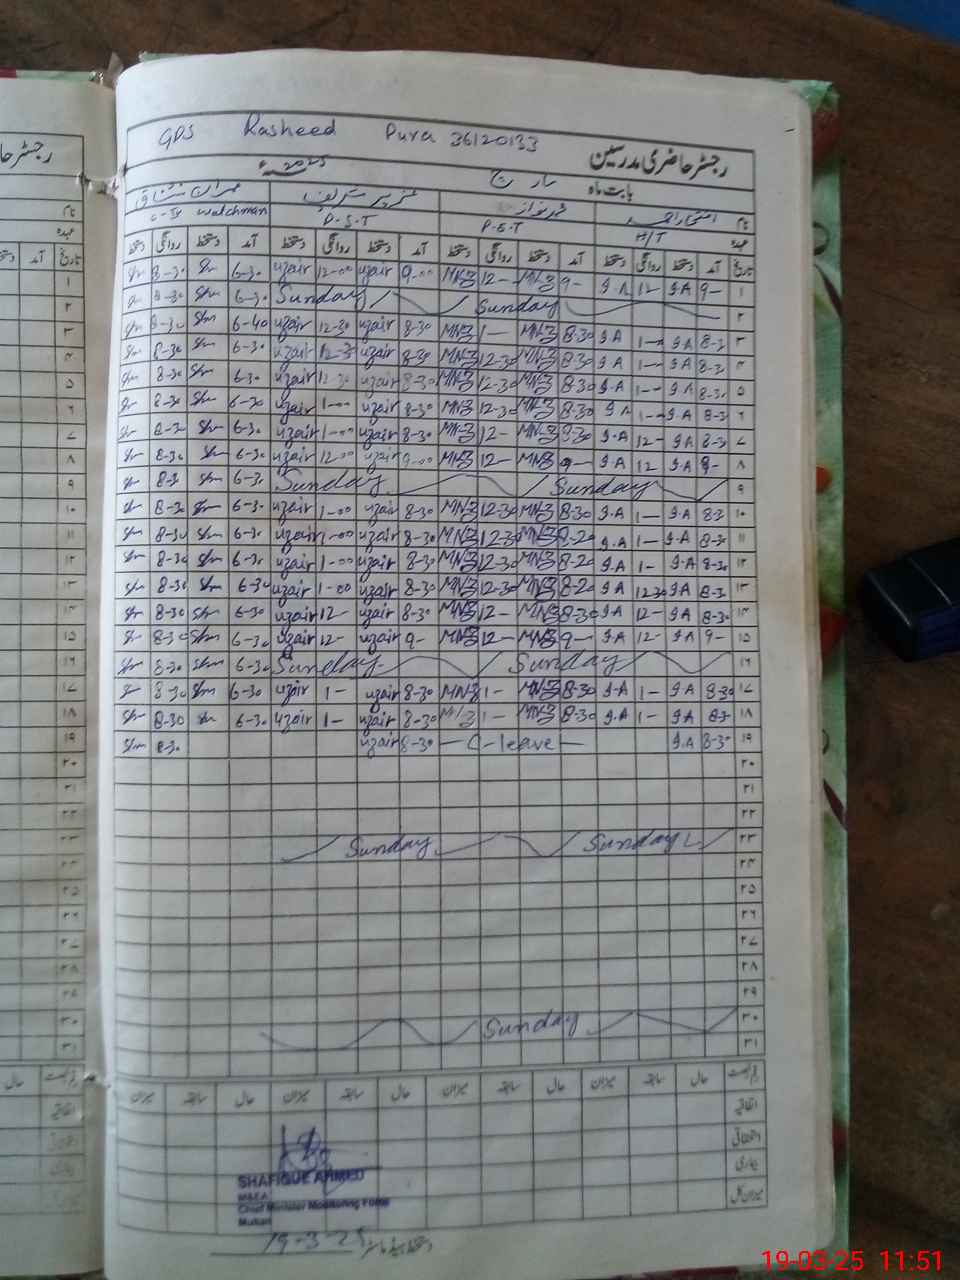 GPS Rasheed Pura 36120133
رجسٹر حاضری مدرسین
بابت ماہ مارچ 2025ء
نام
عہدہ H/T P.S.T P.S.T C-IV watchman
تاریخ آمد دستخط روانگی دستخط آمد دستخط روانگی دستخط آمد دستخط روانگی دستخط آمد دستخط روانگی دستخط
۱ 9- S.A 12- S.A 9- MNZ 12- MNZ 9-00 uzair 12-00 uzair 6-30 Shr 8-30 Shr
۲ Sunday Sunday 6-30 Shr 8-30 Shr
۳ 8-30 S.A 1- S.A 8-30 MNZ 1- MNZ 8-30 uzair 12-30 uzair 6-40 Shr 8-30 Shr
۴ 8-30 S.A 1- S.A 8-30 MNZ 12-30 MNZ 8-30 uzair 12-30 uzair 6-30 Shr 8-30 Shr
۵ 8-30 S.A 1- S.A 8-30 MNZ 12-30 MNZ 8-30 uzair 12-30 uzair 6-30 Shr 8-30 Shr
۶ 8-30 S.A 1- S.A 8-30 MNZ 12-30 MNZ 8-30 uzair 1-00 uzair 6-30 Shr 8-30 Shr
۷ 8-30 S.A 12- S.A 8-30 MNZ 12- MNZ 8-30 uzair 1-00 uzair 6-30 Shr 8-30 Shr
۸ 9- S.A 12 S.A 9- MNZ 12- MNZ 9-00 uzair 12-00 uzair 6-30 Shr 8-30 Shr
۹ Sunday Sunday 6-30 Shr 8-30 Shr
۱۰ 8-30 S.A 1- S.A 8-30 MNZ 12-30 MNZ 8-30 uzair 1-00 uzair 6-30 Shr 8-30 Shr
۱۱ 8-30 S.A 1- S.A 8-20 MNZ 12-30 MNZ 8-30 uzair 1-00 uzair 6-30 Shr 8-30 Shr
۱۲ 8-30 S.A 1- S.A 8-20 MNZ 12-30 MNZ 8-30 uzair 1-00 uzair 6-30 Shr 8-30 Shr
۱۳ 8-30 S.A 12-30 S.A 8-20 MNZ 12-30 MNZ 8-30 uzair 1-00 uzair 6-30 Shr 8-30 Shr
۱۴ 8-30 S.A 12- S.A 8-30 MNZ 12- MNZ 8-30 uzair 12- uzair 6-30 Shr 8-30 Shr
۱۵ 9- S.A 12- S.A 9- MNZ 12- MNZ 9- uzair 12- uzair 6-30 Shr 8-30 Shr
۱۶ Sunday Sunday 6-30 Shr 8-30 Shr
۱۷ 8-30 S.A 1- S.A 8-30 MNZ 1- MNZ 8-30 uzair 1- uzair 6-30 Shr 8-30 Shr
۱۸ 8-30 S.A 1- S.A 8-30 MNZ 1- MNZ 8-30 uzair 1- uzair 6-30 Shr 8-30 Shr
۱۹ 8-30 S.A C-leave 8-30 uzair 8-30 Shr
۲۰
۲۱
۲۲
۲۳ Sunday Sunday
۲۴
۲۵
۲۶
۲۷
۲۸
۲۹
۳۰ Sunday
۳۱
حال سابقہ میزان حال سابقہ میزان حال سابقہ میزان حال سابقہ میزان
اتفاقیہ
بیماری
میزان کل
SHAFIQUE AHMED
M&EA
Chief Minister Monitoring Force
Multan
19-3-25
19-03-25 11:51